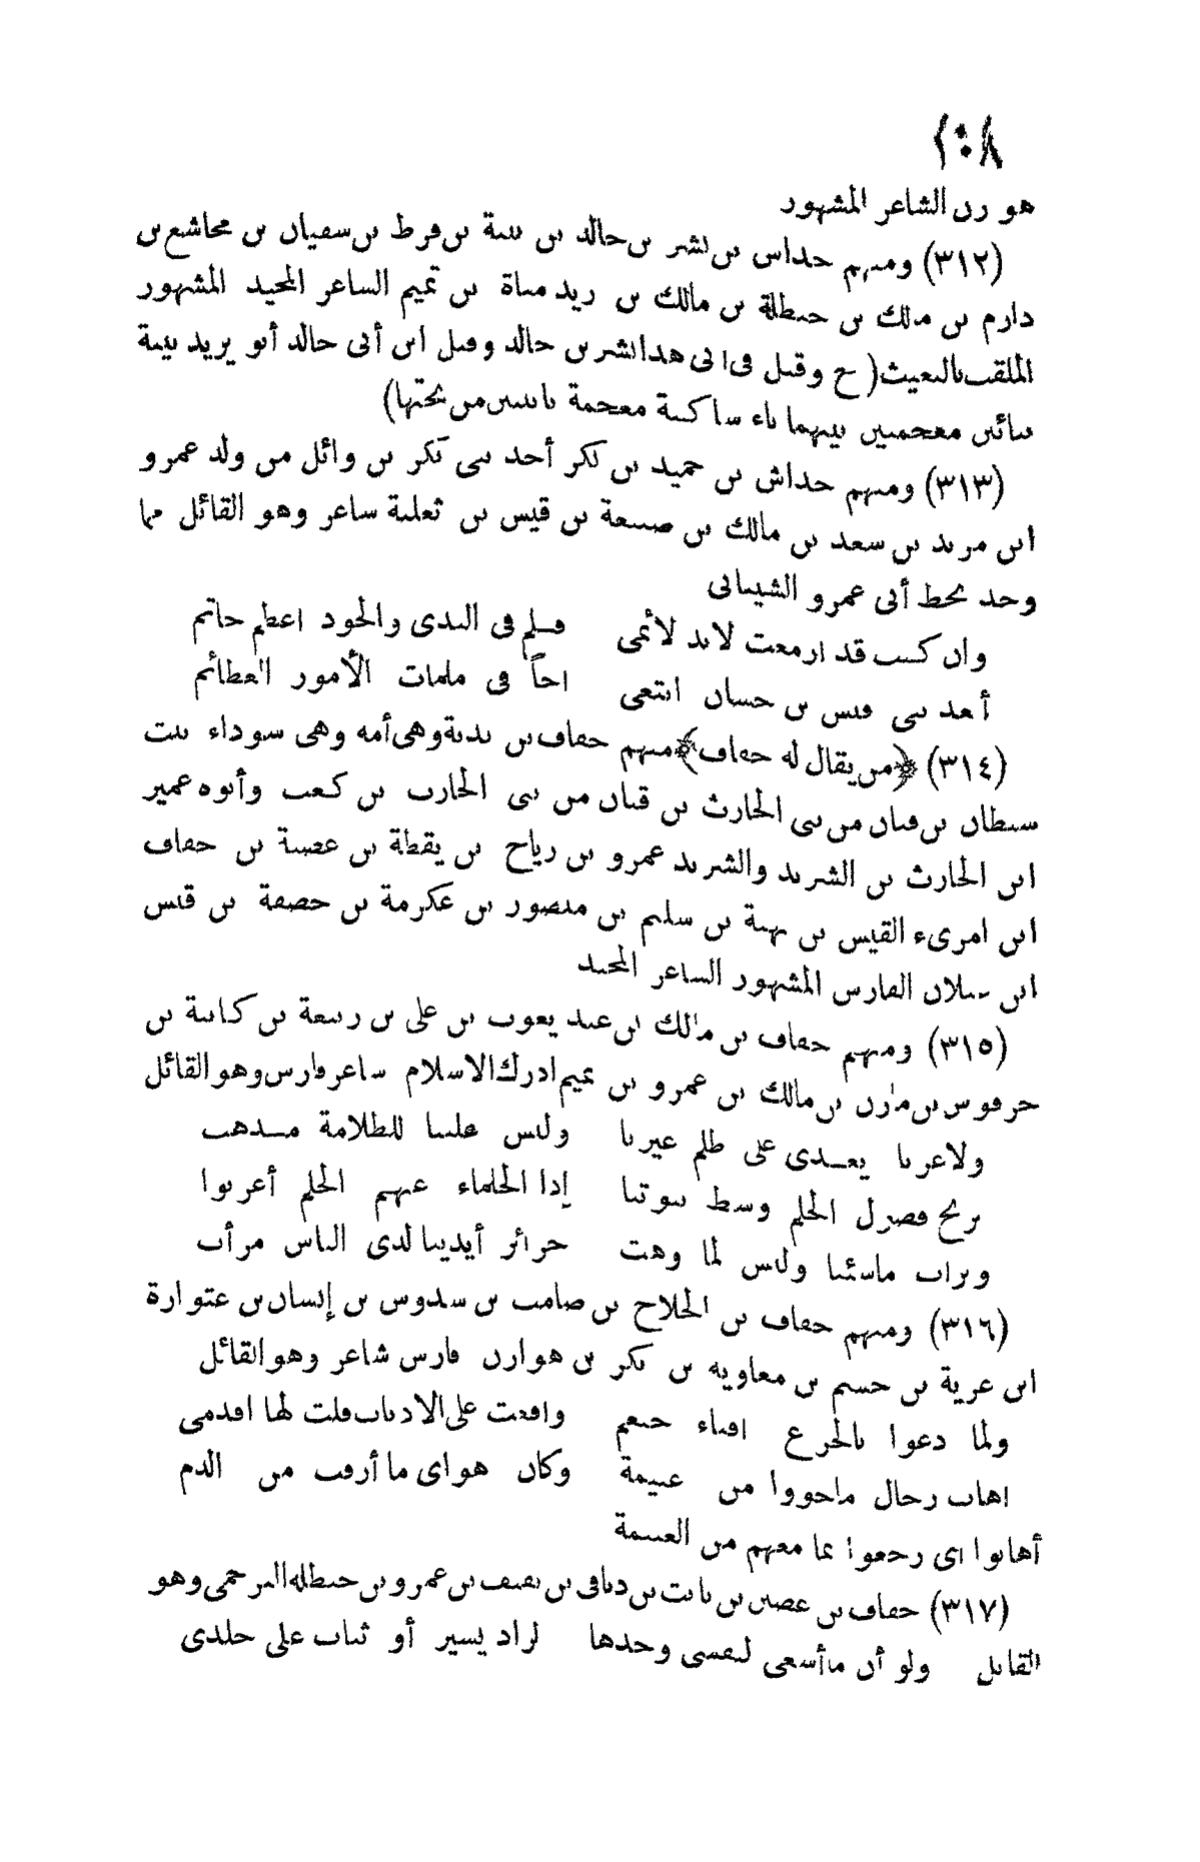 ١٠٨
هو رن الشاعر المشهور
(٣١٢) ومنهم خداش بن بشر بن خالد بن بيبة بن قرط بن سفيان بن مجاشع بن
دارم بن مالك بن حنظلة بن مالك بن زيد مناة بن تميم الشاعر المجيد المشهور
الملقب بالبعيث (ح وقيل في أبى هذا بشر بن خالد وقيل ابن أبى خالد أبو يزيد بيبة
ببائين معجمتين بينهما ياء ساكنة معجمة باثنتين من تحتها)
(٣١٣) ومنهم خداش بن حميد بن بكر أحد بنى بكر بن وائل من ولد عمرو
ابن مرثد بن سعد بن مالك بن ضبيعة بن قيس بن ثعلبة شاعر وهو القائل مما
وجد بخط أبى عمرو الشيبانى
وان كنت قد ازمعت لا بد لائمى فلم فى الندى والجود اعظم حاتم
أبعد بنى قيس بن حسان ابتغى اخاً فى ملمات الأمور العظائم
(٣١٤) ﴿من يقال له خفاف﴾ منهم خفاف بن ندبة وهى أمه وهى سوداء بنت
شيطان بن قنان من بنى الحارث بن قنان من بنى الحارث بن كعب وأبوه عمير
ابن الحارث بن الشريد والشريد عمرو بن رياح بن يقظة بن عصية بن خفاف
ابن امرىء القيس بن بهثة بن سليم بن منصور بن عكرمة بن خصفة بن قيس
ابن عيلان الفارس المشهور الشاعر المجيد
(٣١٥) ومنهم خفاف بن مالك بن عبد يغوث بن على بن ربيعة بن كابية بن
حرقوص بن مازن بن مالك بن عمرو بن تميم ادرك الاسلام شاعر فارس وهو القائل
ولا عزنا يعــدى على ظلم غيرنا وليس علينا للظلامة مــذهب
يريح فضول الحلم وسط بيوتنا إذا الحلماء عنهم الحلم أعزبوا
ونراب ماشئنا وليس لما وهت جرائر أيدينا لدى الناس مرأب
(٣١٦) ومنهم خفاف بن الحلاج بن صامت بن سدوس بن إنسان بن عتوارة
ابن غزية بن جشم بن معاويه بن بكر بن هوازن فارس شاعر وهو القائل
ولما دعوا بالجزع افناء خثعم وافعت على الاذناب قلت لها اقدمى
اهاب رجال ماحووا من غنيمة وكان هواى ما أرقت من الدم
أهابوا اى رجعوا بما معهم من الغنيمة
(٣١٧) خفاف بن غصين بن بن عمرو بن حنظله البرجمى وهو
القائل ولو أن ما أسعى لنفسى وحدها لزاد يسير أو ثياب على جلدى